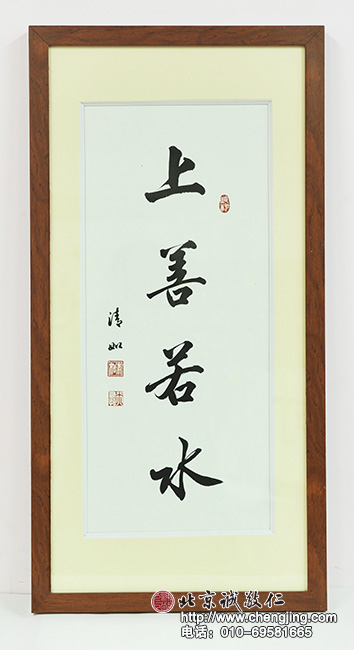 上善若水
清如
北京诚敬仁
http://www.chengjing.com
电话：010-69581665